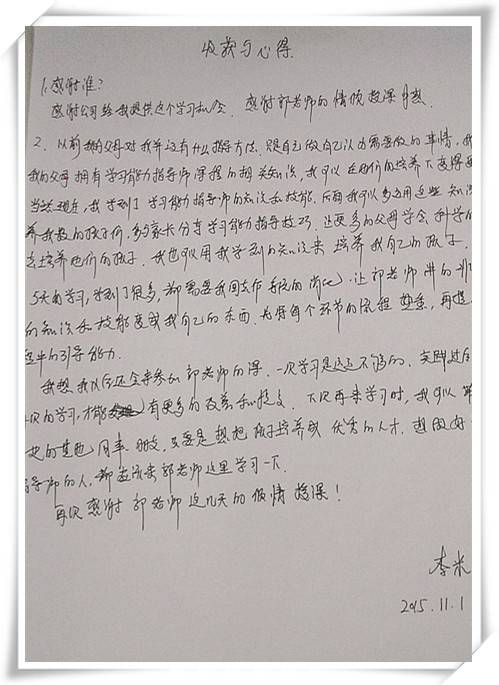 收获与心得
1. 感谢谁?
感谢公司给我提供这个学习机会. 感谢郭老师的倾情授课
2. 以前我的父母对我并没有什么指导方法. 只是自己做自己认为需要做的事情,
我的父母拥有学习能力指导师课程的相关知识, 我可以在他们的培养下变得
当然现在, 我学到了学习能力指导师的知识和技能. 后面我可以多运用这些知
养我教的孩子们, 多与家长分享学习能力指导技巧. 让更多的父母学会科学
去培养他们的孩子. 我也可以用我学到的知识来培养我自己的孩子.
5天的学习, 学到了很多, 都需要我回去作系统的消化. 让郭老师讲的
的知识和技能变成我自己的东西. 先将每个环节的流程整熟, 再
的引导能力.
我想我以后还会来参加郭老师的课. 一次学习是远远不够的, 实践过后
次的学习, 才能有更多的改善和提文. 下次再来学习时, 我可以
她的其他同事. 朋友, 只要是想把孩子培养成优秀的人才. 想做好
导师的人, 都应该来郭老师这里学习一下.
再次感谢郭老师这几天的倾情授课!
李米
2015.11.1